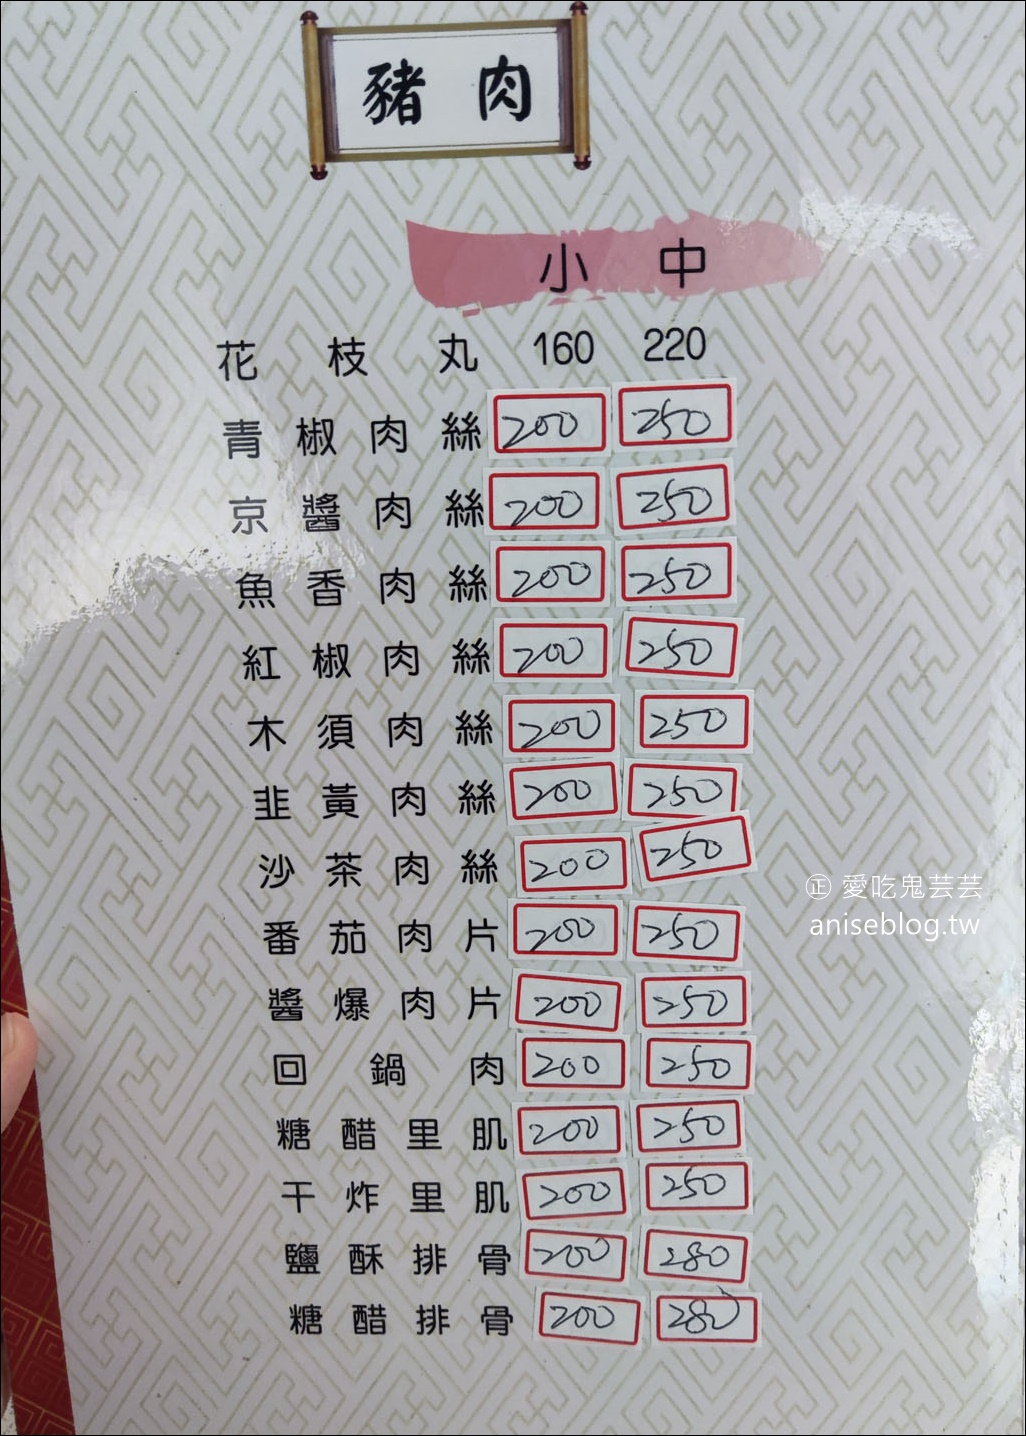 豬肉
小 中
花枝丸 160 220
青椒肉絲 200 250
京醬肉絲 200 250
魚香肉絲 200 250
紅椒肉絲 200 250
木須肉絲 200 250
韭黃肉絲 200 250
沙茶肉絲 200 250
番茄肉片 200 250
醬爆肉片 200 250
回鍋肉 200 250
糖醋里肌 200 250
干炸里肌 200 250
鹽酥排骨 200 280
糖醋排骨 200 280
正 愛吃鬼芸芸
aniseblog.tw